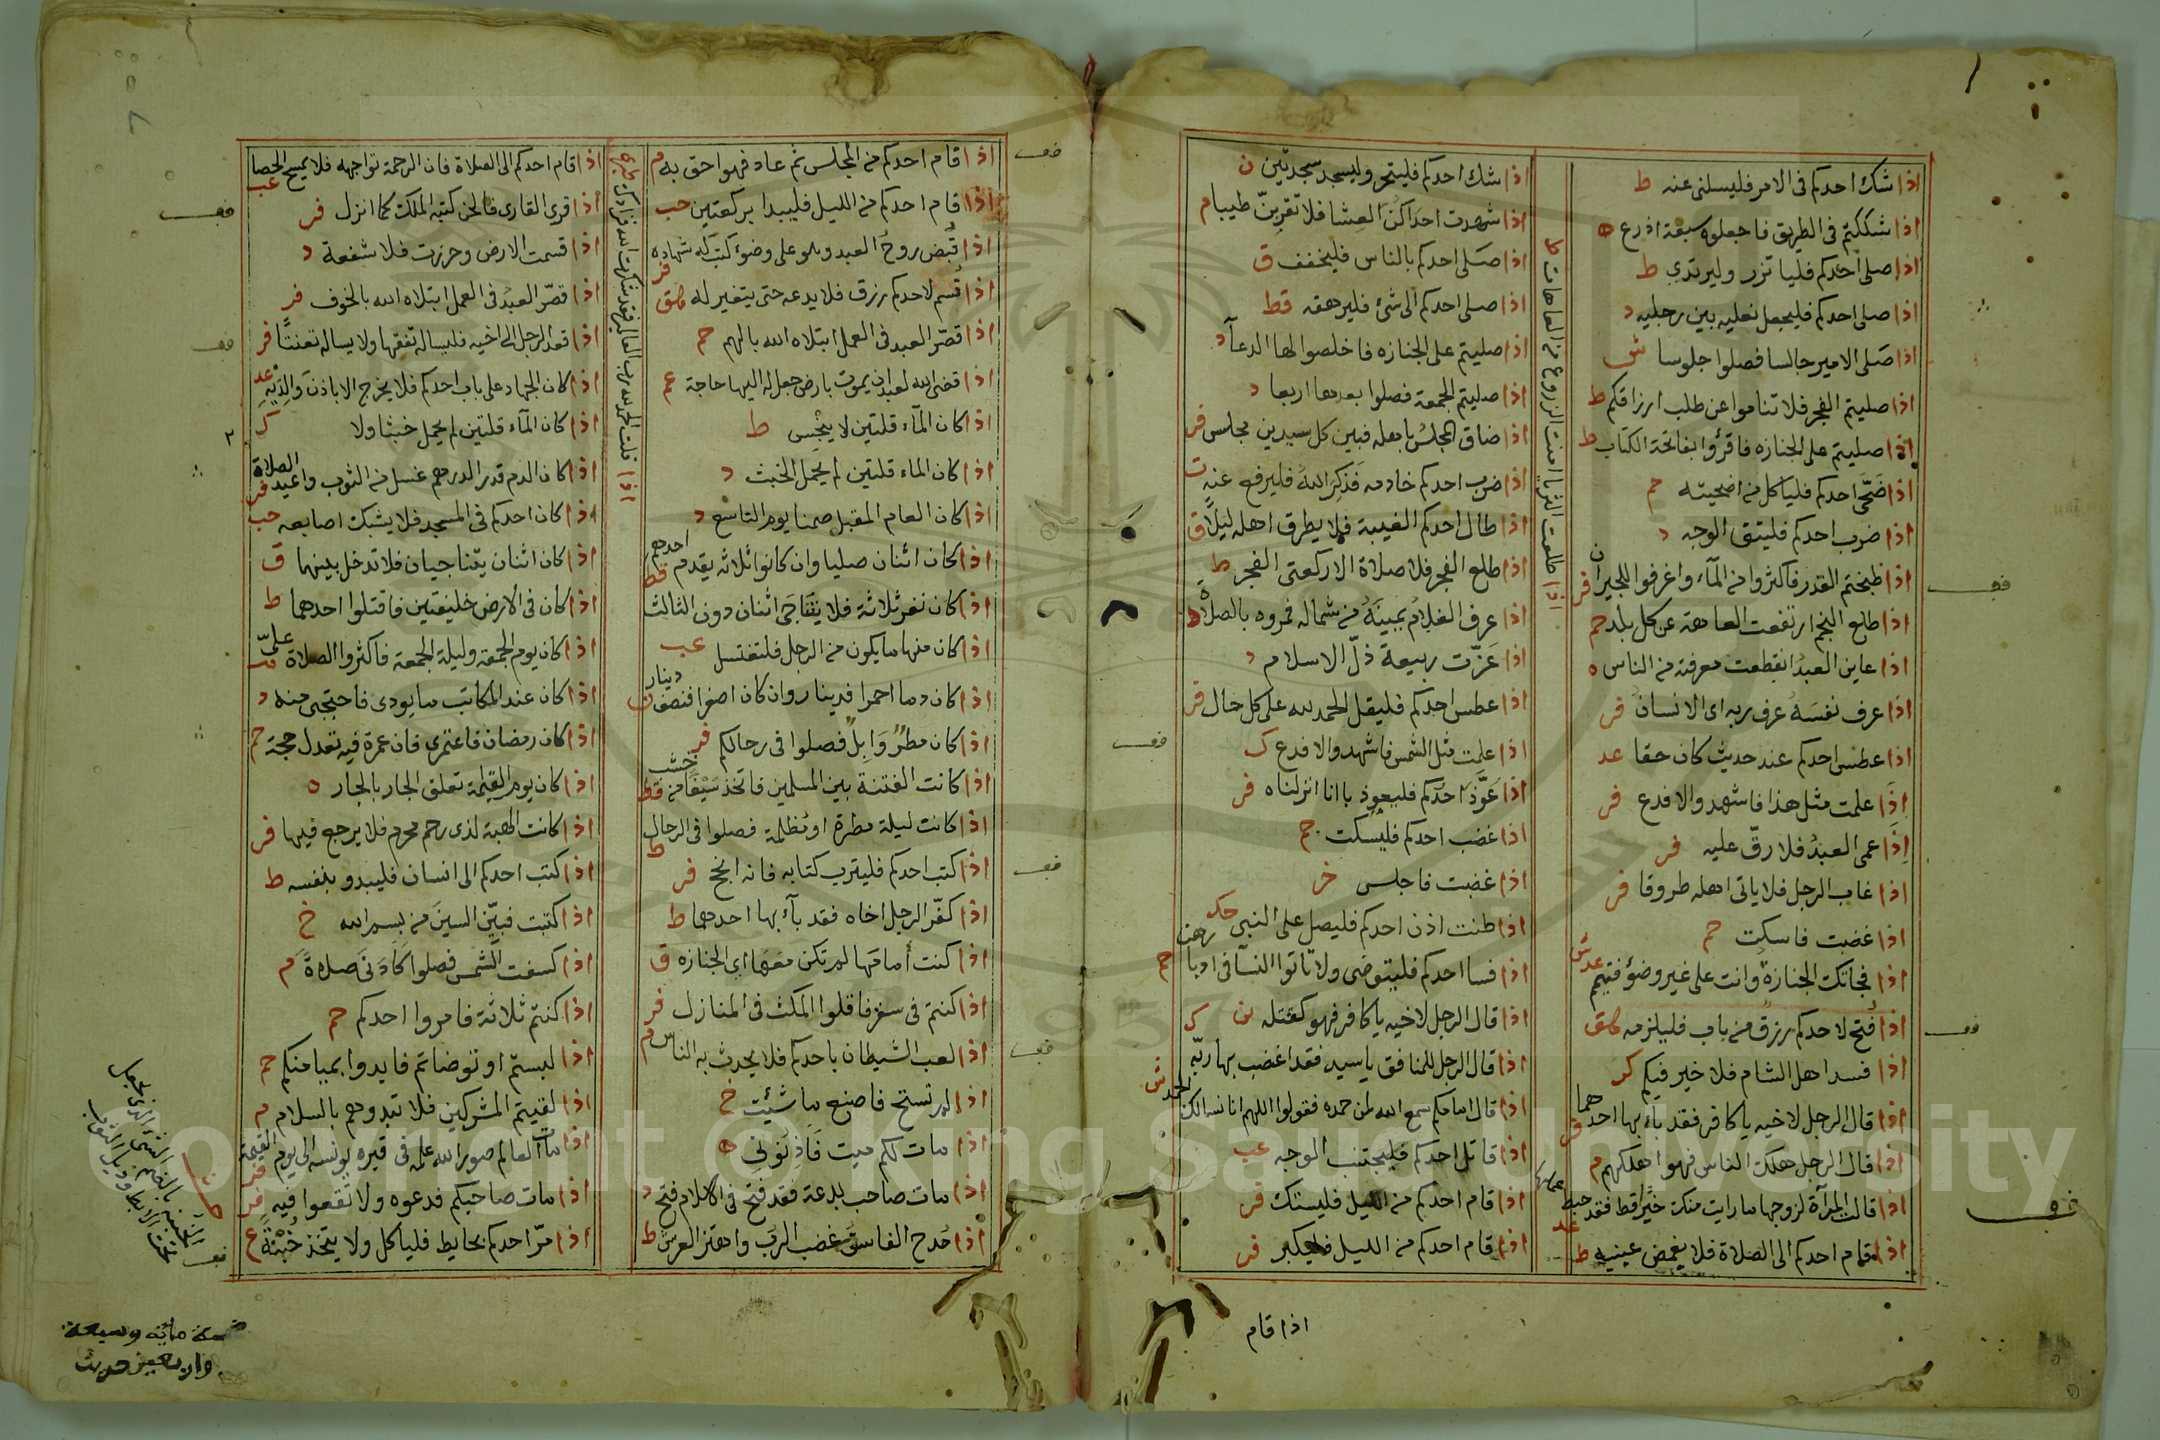 اذا شك احدكم فى الامر فليسلنى عنه ط
اذا شككتم فى الطريق فاجعلوه سبعة اذرع ه
اذا صلى احدكم فلياتزر وليرتدي ط
اذا صلى احدكم فليجعل نعليه بين رجليه د
اذا صلى الامير جالسا فصلوا جلوسا ش
اذا صليتم الفجر فلا تناموا عن طلب ارزاقكم ط
اذا صليتم على الجنازه فاقرؤا بفاتحة الكتاب ط
اذا ضحى احدكم فلياكل من اضحيته حم
اذا ضرب احدكم فليتق الوجه د
اذا طبختم القدر فاكثروا من المآء واغرفوا للجيران فر
اذا طلع النجم ارتفعت العاهة عن كل بلد حم
اذا عاين العبد انقطعت معرفته من الناس ه
اذا عرف نفسه عرف ربه اى الانسان فر
اذا عطس احدكم عند حديث كان حقا عد
اذا علمت مثل هذا فاشهد والا فدع فر
اذا عمى العبد فلا رق عليه فر
اذا غاب الرجل فلا ياتى اهله طروقا فر
اذا غضبت فاسكت حم
اذا فجاتك الجنازة وانت على غير وضؤ فتيمم عد
اذا فتح لاحدكم رزق من باب فليلزمه هق
اذا فسد اهل الشام فلا خير فيكم كر
اذا قال الرجل لاخيه ياكافر فقد بآء بها احدهما
اذا قال الرجل هلك الناس فهو اهلكهم م
اذا قالت المرآة لزوجها ما رايت منك خيرا قط فقد حبط عملها عد
اذا قام احدكم الى الصلاة فلا يغمض عينيه ط
اذا طلعت الثريا امنت الزروع من العاهات ط
اذا شك احدكم فليتحر وليسجد سجدتين ن
اذا شهدت احداكن العشا فلا تقربن طيبا م
اذا صلى احدكم بالناس فليخفف ق
اذا صلى احدكم الى شئ فليرهقه قط
اذا صليتم على الجنازه فاخلصوا لها الدعآ د
اذا صليتم الجمعة فصلوا بعدها اربعا د
اذا ضاق المجلس باهله فبين كل سيدين مجلس فر
اذا ضرب احدكم خادمه فذكر الله فليرفع عنه ت
اذا طال احدكم الغيبة فلا يطرق اهله ليلا ق
اذا طلع الفجر فلا صلاة الا ركعتى الفجر ط
اذا عرف الغلام يمينه من شماله فمروه بالصلاة د
اذا عزت ربيعة ذل الاسلام د
اذا عطس احدكم فليقل الحمد لله على كل حال فر
اذا علمت مثل الشمس فاشهد والا فدع ك
اذا عوذ احدكم فليعوذ بانا انزلناه فر
اذا غضب احدكم فليسكت حم
اذا غضبت فاجلس خر
اذا طنت اذن احدكم فليصل على النبى
اذا فسا احدكم فليتوضى ولا تاتوا النسآ فى ادبارهن حم
اذا قال الرجل لاخيه ياكافر فهو كقتله
اذا قال الرجل للمنافق ياسيد فقد اغضب بها ربه ك
اذا قال امامكم سمع الله لمن حمده فقولوا اللهم انا نسالك الحمد ش
اذا قاتل احدكم فليجتنب الوجه عب
اذا قام احدكم من الليل فليستك فر
اذا قام احدكم من الليل فليكبر فر
اذا قام
اذا قام احدكم من المجلس ثم عاد فهو احق به م
اذا قام احدكم من الليل فليبدا بركعتين حب
اذا قبض روح العبد وهو على وضؤ كتب له شهاده فر
اذا قسم لاحدكم رزق فلا يدعه حتى يتغير له هق
اذا قصر العبد فى العمل ابتلاه الله بالهم حم
اذا قضى الله لعبد ان يموت بارض جعل له اليها حاجة عم
اذا كان المآء قلتين لا ينجس ط
اذا كان الماء قلتين لم يحمل الخبث د
اذا كان العام المقبل صمنا يوم التاسع د
اذا كان اثنان صليا وان كانوا ثلاثه يقدم احدهم قط
اذا كان نفر ثلاثة فلا يتناجى اثنان دون الثالث
اذا كان منها ما يكون من الرجل فلتغتسل عب
اذا كان دما احمرا فدينار وان كان اصفرا فنصف دينار ت
اذا كان مطر وابل فصلوا فى رحالكم فر
اذا كانت الفتنة بين المسلمين فاتخذ سيفا من خشب قط
اذا كانت ليلة مطرة او مظلمة فصلوا فى الرحال ط
اذا كتب احدكم فليترب كتابه فانه انجح فر
اذا كفر الرجل اخاه فقد بآء بها احدهما ط
اذا كنت أمامها لم تكن معها اى الجنازه ق
اذا كنتم فى سفر فاقلوا المكث فى المنازل فر
اذا لعب الشيطان باحدكم فلا يحدث به الناس م
اذا لم تستح فاصنع ما شئت خ
اذا مات لكم ميت فاذنونى ه
اذا مات صاحب بدعة فقد فتح فى الاسلام فتح د
اذا مدح الفاسق غضب الرب واهتز العرش ط
اذا قلت الحمد لله رب العالمين فقد شكرت الله فزادك
اذا قام احدكم الى الصلاة فان الرحمة تواجهه فلا يمسح الحصا عب
اذا قرى القارى فالحن كتبه الملك كما انزل فر
اذا قسمت الارض وحرزت فلا شفعة د
اذا قصر العبد فى العمل ابتلاه الله بالخوف فر
اذا قعد الرجل الى اخيه فليساله تفقها ولا يساله تعنتا فر
اذا كان الجهاد على باب احدكم فلا يخرج الا باذن والديه عد
اذا كان المآء قلتين لم يحمل خبثا ولا ك
اذا كان الدم قدر الدرهم غسل من الثوب واعيد الصلاة فر
اذا كان احدكم فى المسجد فلا يشبك اصابعه حب
اذا كان اثنان يتناجيان فلا تدخل بينهما ق
اذا كان فى الارض خليفتين فاقتلوا احدهما ط
اذا كان يوم الجمعة وليلة الجمعة فاكثروا الصلاة على
اذا كان عند المكاتب ما يودى فاحتجبى منه د
اذا كان رمضان فاعتمرى فان عمرة فيه تعدل حجة حم
اذا كان يوم القيامة تعلق الجار بالجار ه
اذا كانت الهبة لذى رحم محرم فلا يرجع فيها فر
اذا كتب احدكم الى انسان فليبدو بنفسه ط
اذا كتبت فبين السين من بسم الله خ
اذا كسفت الشمس فصلوا كادنى صلاة م
اذا كنتم ثلاثة فامروا احدكم حم
اذا لبستم او توضاتم فابدوا بميامنكم حم
اذا لقيتم المشركين فلا تبدوهم بالسلام م
اذا مات العالم صور الله علمه فى قبره يونسه الى يوم القيمة فر
اذا مات صاحبكم فدعوه ولا تقعوا فيه فر
اذا مر احدكم بحايط فلياكل ولا يتخذ خبنة ع
الخبنة بالضم الشئ الذى يحمل
تحت الابط وذيل الثوب
خمسة مائة وسبعة
واربعين حديث
Copyright © King Saud University
1957